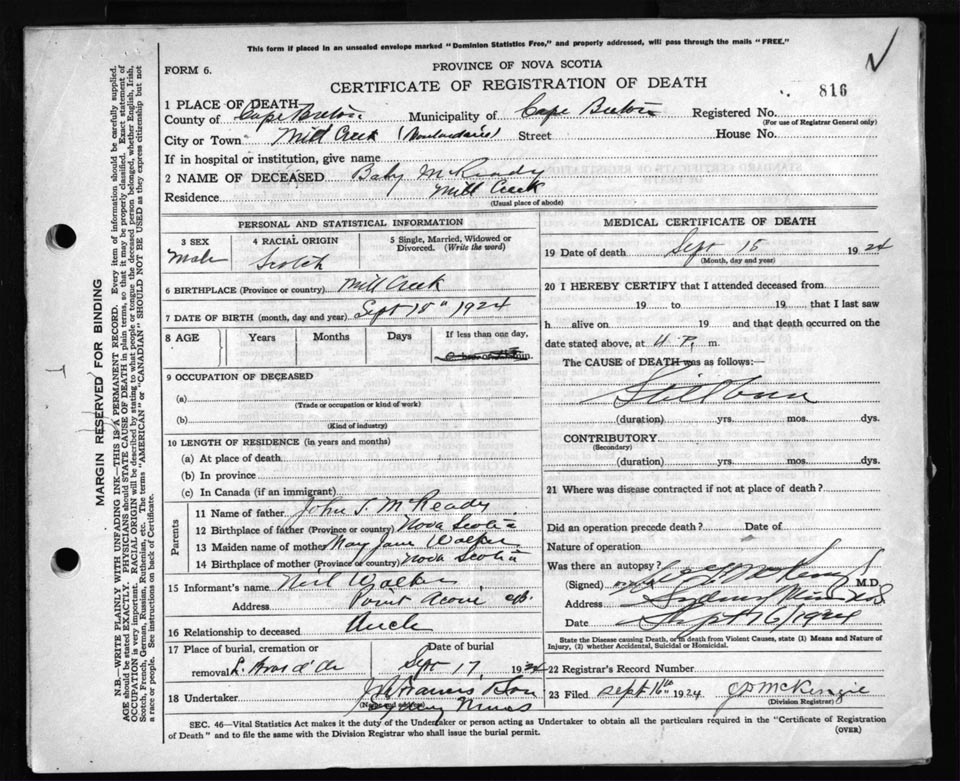 This form if placed in an unsealed envelope marked "Dominion Statistics Free," and properly addressed, will pass through the mails "FREE."
PROVINCE OF NOVA SCOTIA
FORM 6.
CERTIFICATE OF REGISTRATION OF DEATH
816
1 PLACE OF DEATH
County of Cape Breton Municipality of Cape Breton Registered No.
(For use of Registrar General only)
City or Town Mill Creek Street House No.
If in hospital or institution, give name
2 NAME OF DECEASED Baby McReady
Residence Mill Creek
(Usual place of abode)
PERSONAL AND STATISTICAL INFORMATION
3 SEX 4 RACIAL ORIGIN 5 Single, Married, Widowed or Divorced. (Write the word)
Male Scotch
6 BIRTHPLACE (Province or country) Mill Creek
7 DATE OF BIRTH (month, day and year) Sept 15" 1924
8 AGE Years Months Days If less than one day,
9 OCCUPATION OF DECEASED
(a)
(Trade or occupation or kind of work)
(b)
(Kind of industry)
10 LENGTH OF RESIDENCE (in years and months)
(a) At place of death
(b) In province
(c) In Canada (if an immigrant)
Parents
11 Name of father John S. McReady
12 Birthplace of father (Province or country) Nova Scotia
13 Maiden name of mother Mary Jane Walker
14 Birthplace of mother (Province or country) Nova Scotia
15 Informant's name Neil Walker
Address Point Aconi C.B.
16 Relationship to deceased Uncle
17 Place of burial, cremation or removal Date of burial
L. Bras d'or Sept 17 1924
18 Undertaker & Son
(Name and address) Sydney Mines
MEDICAL CERTIFICATE OF DEATH
19 Date of death Sept 15 1924
(Month, day and year)
20 I HEREBY CERTIFY that I attended deceased from
19 to 19 that I last saw
h alive on 19 and that death occurred on
date stated above, at 4 P. m.
The CAUSE of DEATH was as follows:—
Stillborn
(duration) yrs. mos. dys.
CONTRIBUTORY
(Secondary)
(duration) yrs. mos. dys.
21 Where was disease contracted if not at place of death?
Did an operation precede death? Date of
Nature of operation
Was there an autopsy?
(Signed) M.D.
Address Sydney Mines NS
Date Sept 16/1924
State the Disease causing Death, or in death from Violent Causes, state (1) Means and Nature of Injury, (2) whether Accidental, Suicidal or Homicidal.
22 Registrar's Record Number
23 Filed Sept 16th 1924 McKenzie
(Division Registrar)
SEC. 46—Vital Statistics Act makes it the duty of the Undertaker or person acting as Undertaker to obtain all the particulars required in the "Certificate of Registration
of Death" and to file the same with the Division Registrar who shall issue the burial permit.
(OVER)
MARGIN RESERVED FOR BINDING
N.B.—WRITE PLAINLY WITH UNFADING INK—THIS IS A PERMANENT RECORD. Every item of information should be carefully supplied.
AGE should be stated EXACTLY. PHYSICIANS should STATE CAUSE OF DEATH in plain terms, so that it may be properly classified. Exact statement of
OCCUPATION is very important. RACIAL ORIGIN will be described by stating to what people or tongue the deceased person belonged, whether English, Irish,
Scotch, French, German, Russian, Ruthenian, etc. The terms "AMERICAN" or "CANADIAN" SHOULD NOT BE USED as they express citizenship but not
a race or people. See instructions on back of Certificate.